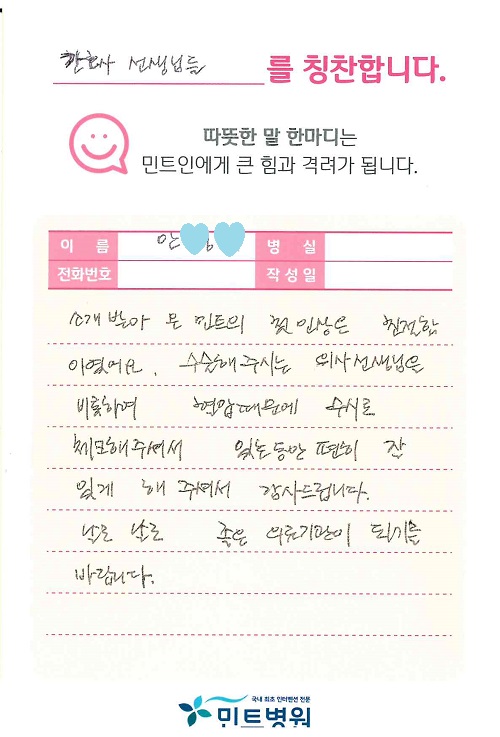 간호사 선생님들 를 칭찬합니다.
따뜻한 말 한마디는
민트인에게 큰 힘과 격려가 됩니다.
이 름 안 병 실
전화번호 작 성 일
소개 받아 온 민트의 첫 인상은 친절함
이였어요. 수술해 주시는 의사 선생님은
비롯하여 혈압때문에 수시로
체크해주셔서 있는동안 편히 잘
있게 해 주셔서 감사드립니다.
날로 날로 좋은 의료기관이 되기를
바랍니다.
국내 최초 인터벤션 전문
민트병원